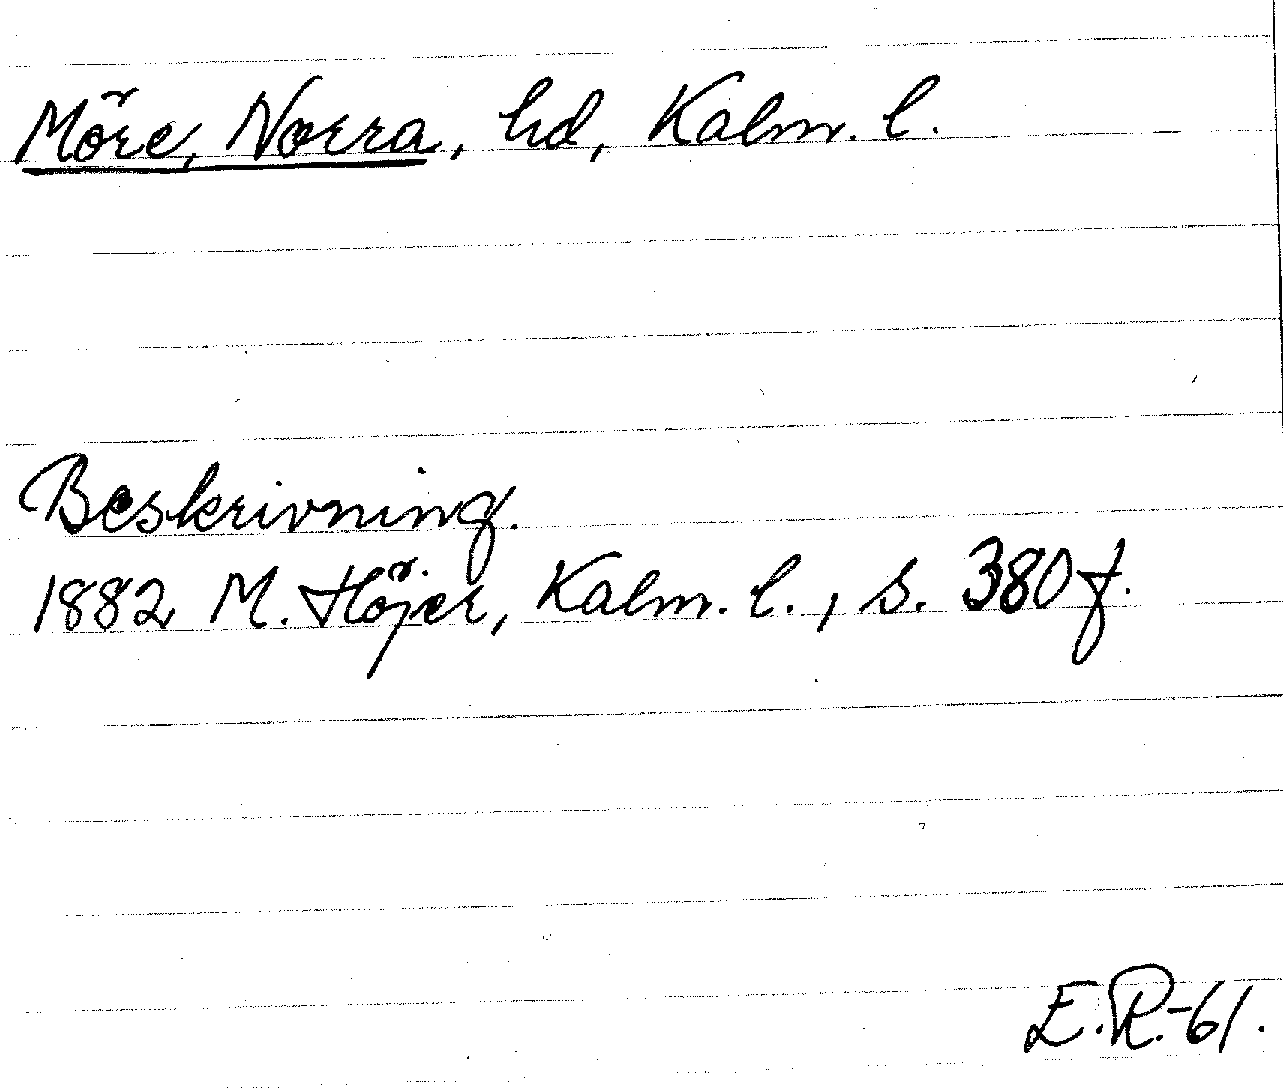 Möre, Norra, hd, Kalm. l.
Beskrivning.
1882 M. Höjer, Kalm. l., s. 380 f.
E.R.-61.